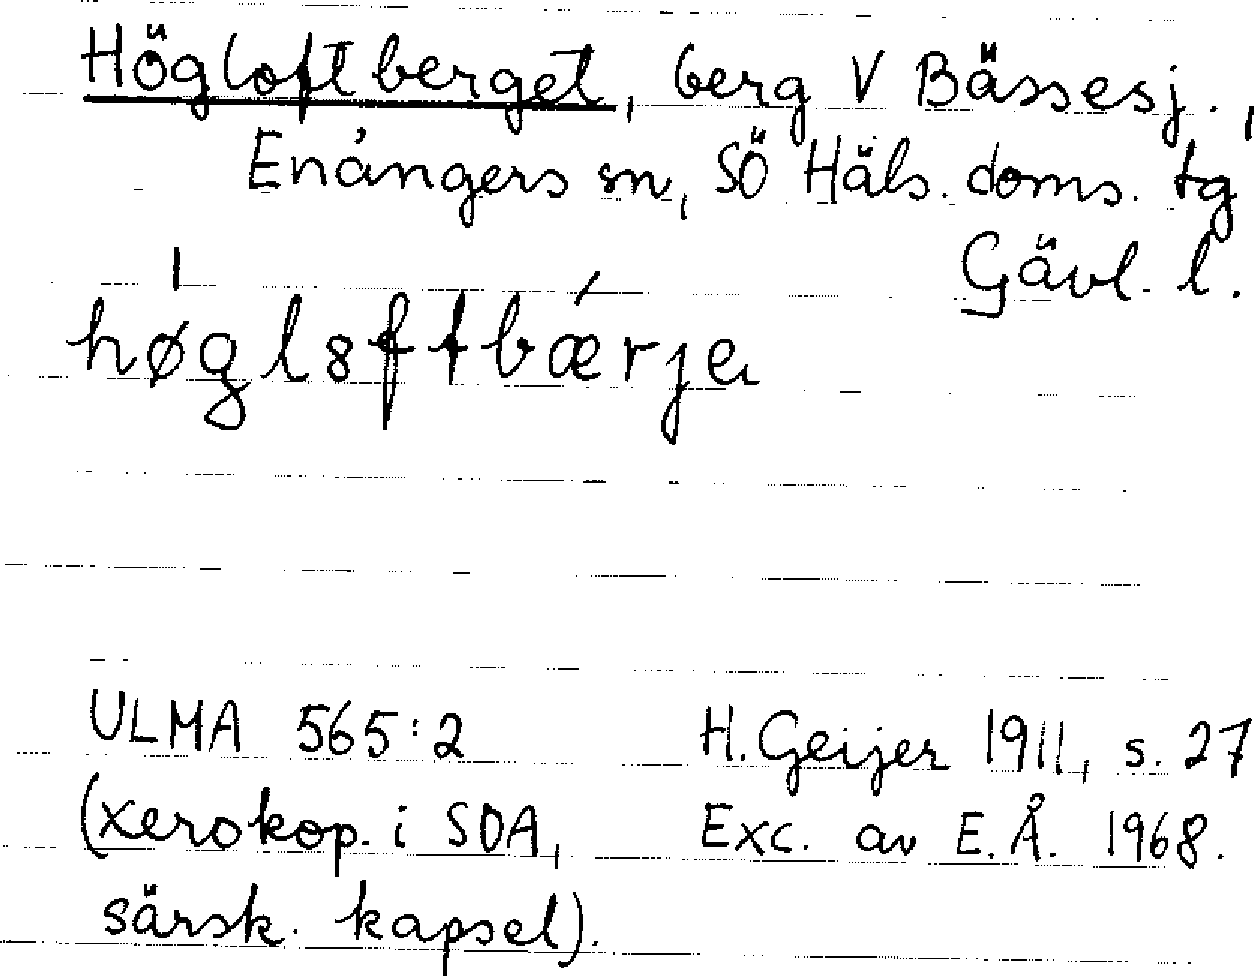 Högloftberget, berg V Bässesj.,
Enångers sn, SÖ Häls. doms. tg
Gävl. l.
ULMA 565:2
H. Geijer 1911, s. 27
(xerokop. i SOA,
Exc. av E.Å. 1968.
särsk. kapsel).